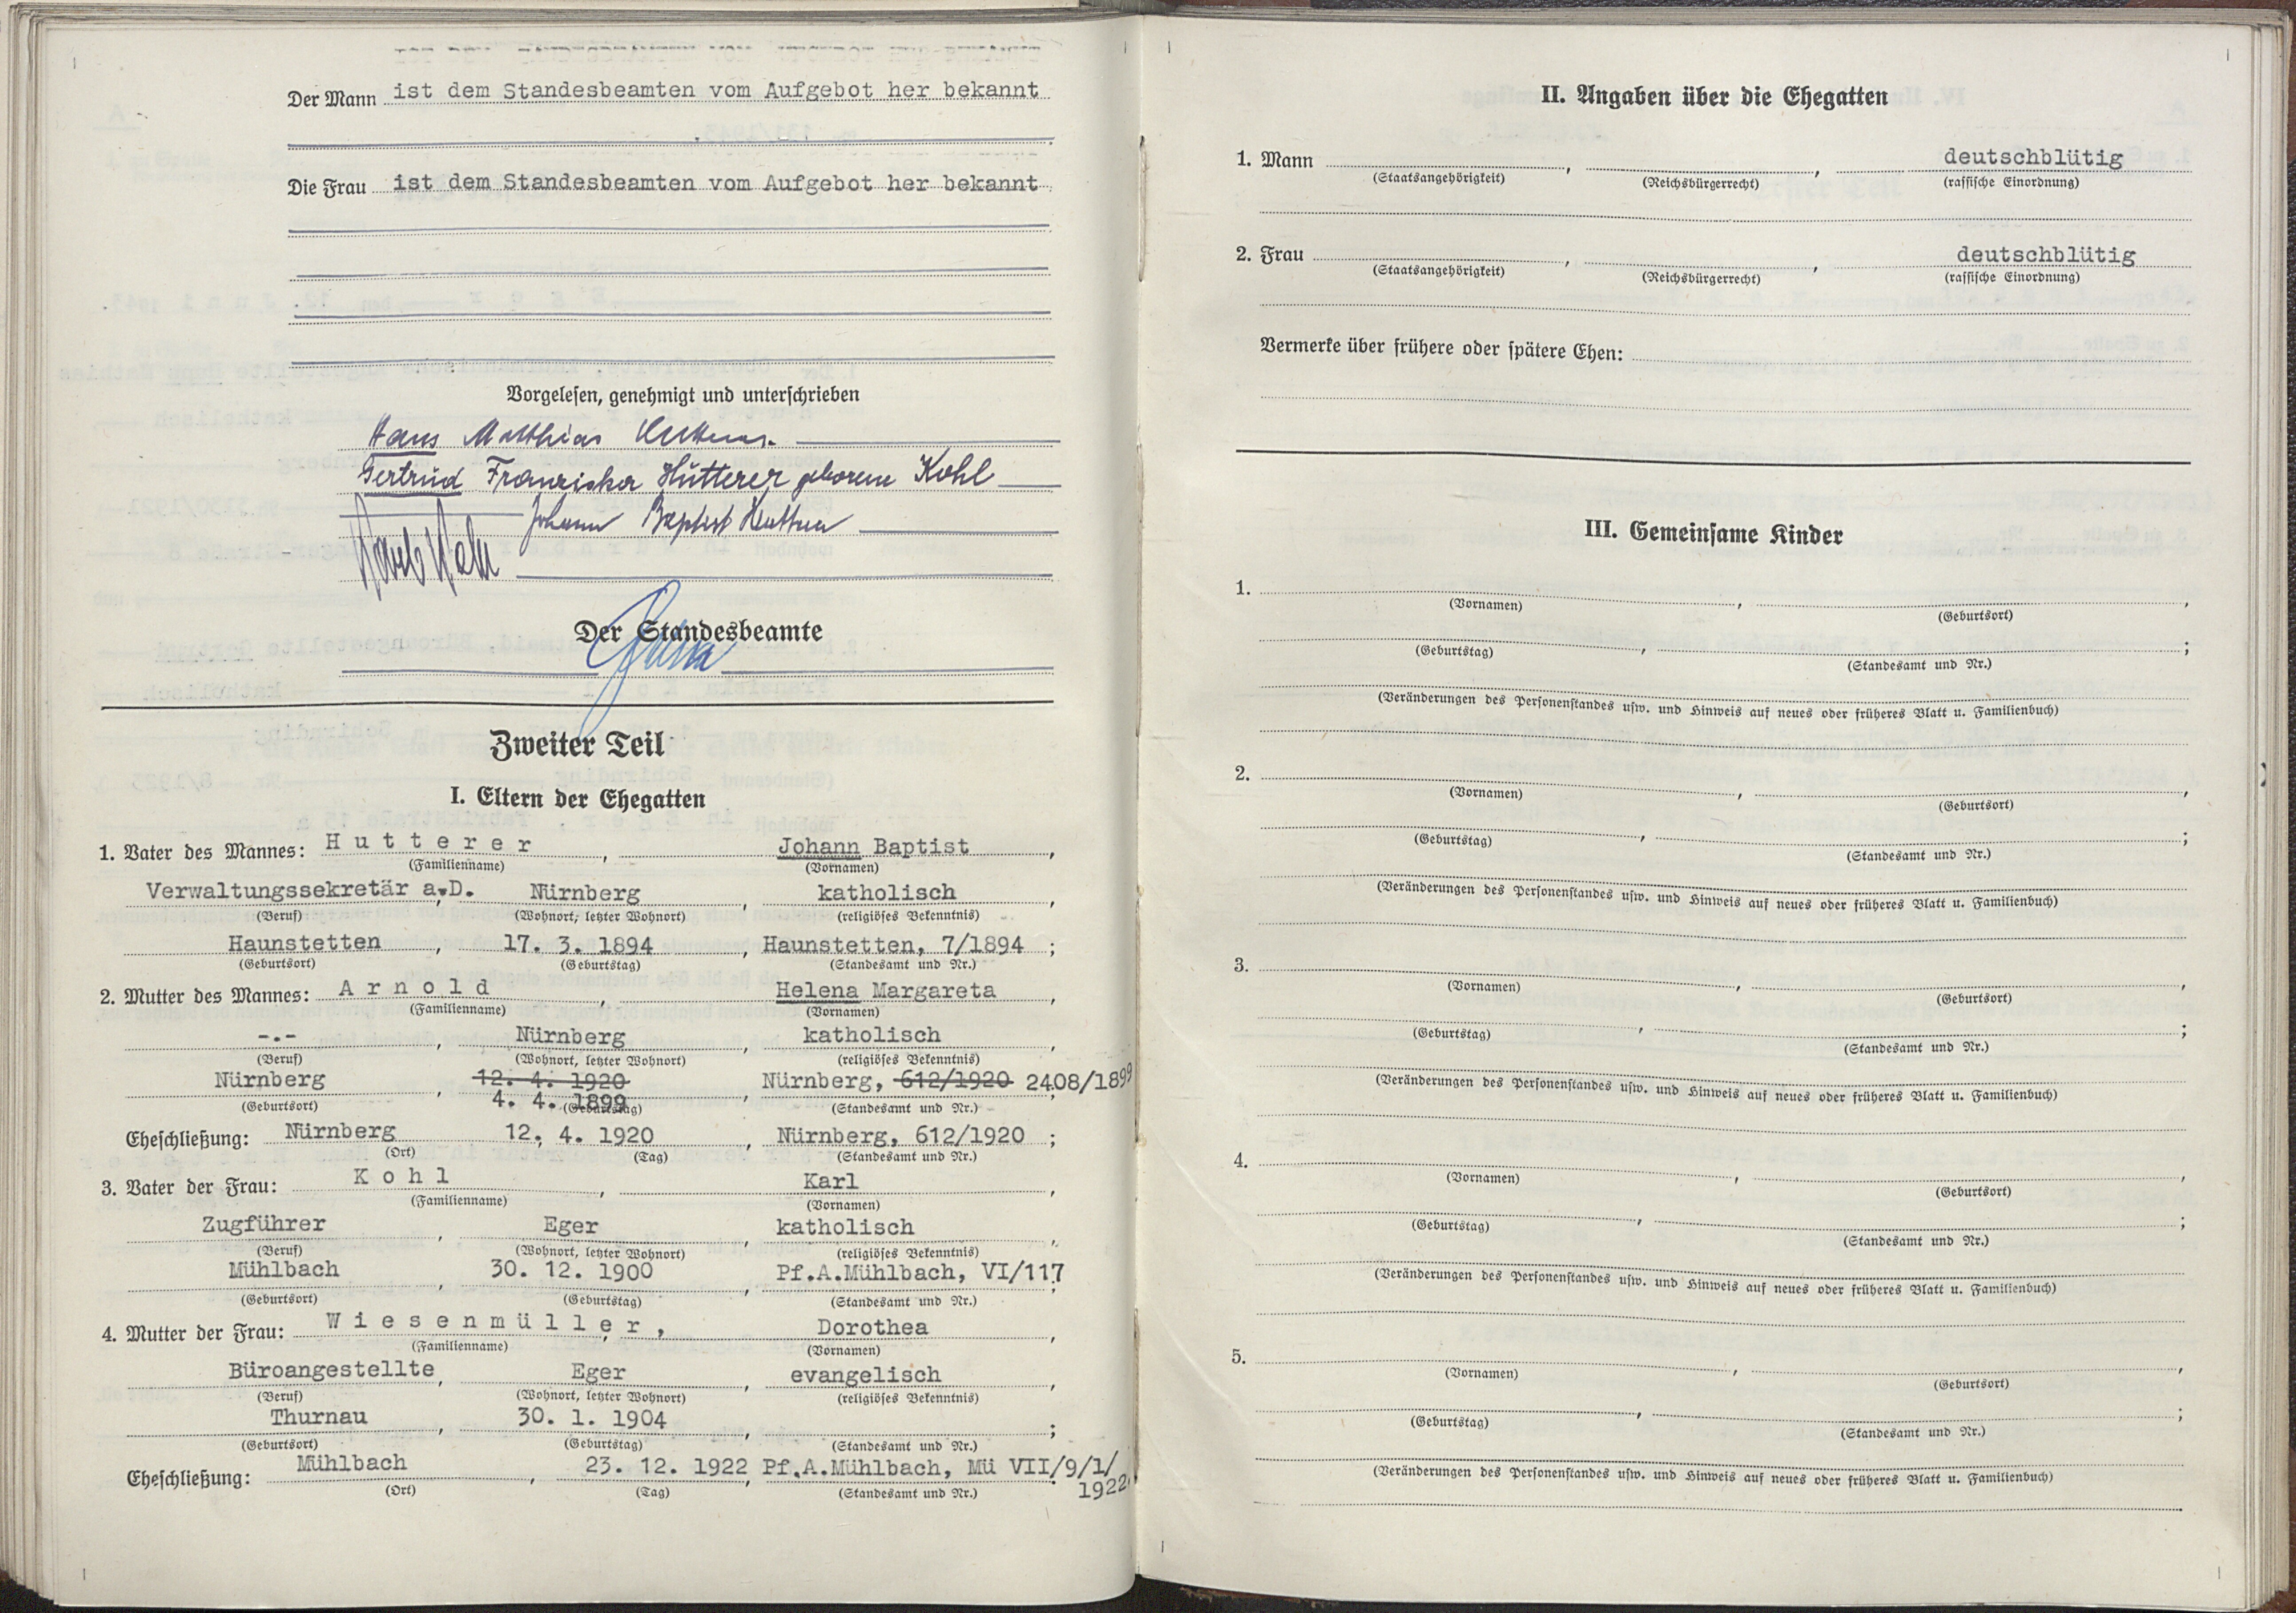 Der Mann ist dem Standesbeamten vom Aufgebot her bekannt
.
Die Frau ist dem Standesbeamten vom Aufgebot her bekannt
Vorgelesen, genehmigt und unterschrieben
Hans Matthias Hutterer.
Gertrud Franziska Hutterer geborene Kohl
Johann Baptist Hutterer
Der Standesbeamte
Zweiter Teil
I. Eltern der Ehegatten
1. Vater des Mannes: H u t t e r e r , Johann Baptist ,
(Familienname) (Vornamen)
Verwaltungssekretär a.D. , Nürnberg , katholisch ,
(Beruf) (Wohnort, letzter Wohnort) (religiöses Bekenntnis)
Haunstetten , 17. 3. 1894 , Haunstetten, 7/1894 ;
(Geburtsort) (Geburtstag) (Standesamt und Nr.)
2. Mutter des Mannes: A r n o l d , Helena Margareta ,
(Familienname) (Vornamen)
-.- , Nürnberg , katholisch ,
(Beruf) (Wohnort, letzter Wohnort) (religiöses Bekenntnis)
Nürnberg , 12. 4. 1920 , Nürnberg, 612/1920 2408/1899 ;
4. 4. 1899
(Geburtsort) (Geburtstag) (Standesamt und Nr.)
Eheschließung: Nürnberg , 12. 4. 1920 , Nürnberg, 612/1920 ;
(Ort) (Tag) (Standesamt und Nr.)
3. Vater der Frau: K o h l , Karl ,
(Familienname) (Vornamen)
Zugführer , Eger , katholisch ,
(Beruf) (Wohnort, letzter Wohnort) (religiöses Bekenntnis)
Mühlbach , 30. 12. 1900 , Pf.A.Mühlbach, VI/117 ;
(Geburtsort) (Geburtstag) (Standesamt und Nr.)
4. Mutter der Frau: W i e s e n m ü l l e r , Dorothea ,
(Familienname) (Vornamen)
Büroangestellte , Eger , evangelisch ,
(Beruf) (Wohnort, letzter Wohnort) (religiöses Bekenntnis)
Thurnau , 30. 1. 1904 , ;
(Geburtsort) (Geburtstag) (Standesamt und Nr.)
Eheschließung: Mühlbach , 23. 12. 1922 , Pf.A.Mühlbach, Mü VII/9/1/
1922.
(Ort) (Tag) (Standesamt und Nr.)
II. Angaben über die Ehegatten
1. Mann , , deutschblütig
(Staatsangehörigkeit) (Reichsbürgerrecht) (rassische Einordnung)
2. Frau , , deutschblütig
(Staatsangehörigkeit) (Reichsbürgerrecht) (rassische Einordnung)
Vermerke über frühere oder spätere Ehen:
III. Gemeinsame Kinder
1. , ,
(Vornamen) (Geburtsort)
, ;
(Geburtstag) (Standesamt und Nr.)
(Veränderungen des Personenstandes usw. und Hinweis auf neues oder früheres Blatt u. Familienbuch)
2. , ,
(Vornamen) (Geburtsort)
, ;
(Geburtstag) (Standesamt und Nr.)
(Veränderungen des Personenstandes usw. und Hinweis auf neues oder früheres Blatt u. Familienbuch)
3. , ,
(Vornamen) (Geburtsort)
, ;
(Geburtstag) (Standesamt und Nr.)
(Veränderungen des Personenstandes usw. und Hinweis auf neues oder früheres Blatt u. Familienbuch)
4. , ,
(Vornamen) (Geburtsort)
, ;
(Geburtstag) (Standesamt und Nr.)
(Veränderungen des Personenstandes usw. und Hinweis auf neues oder früheres Blatt u. Familienbuch)
5. , ,
(Vornamen) (Geburtsort)
, ;
(Geburtstag) (Standesamt und Nr.)
(Veränderungen des Personenstandes usw. und Hinweis auf neues oder früheres Blatt u. Familienbuch)